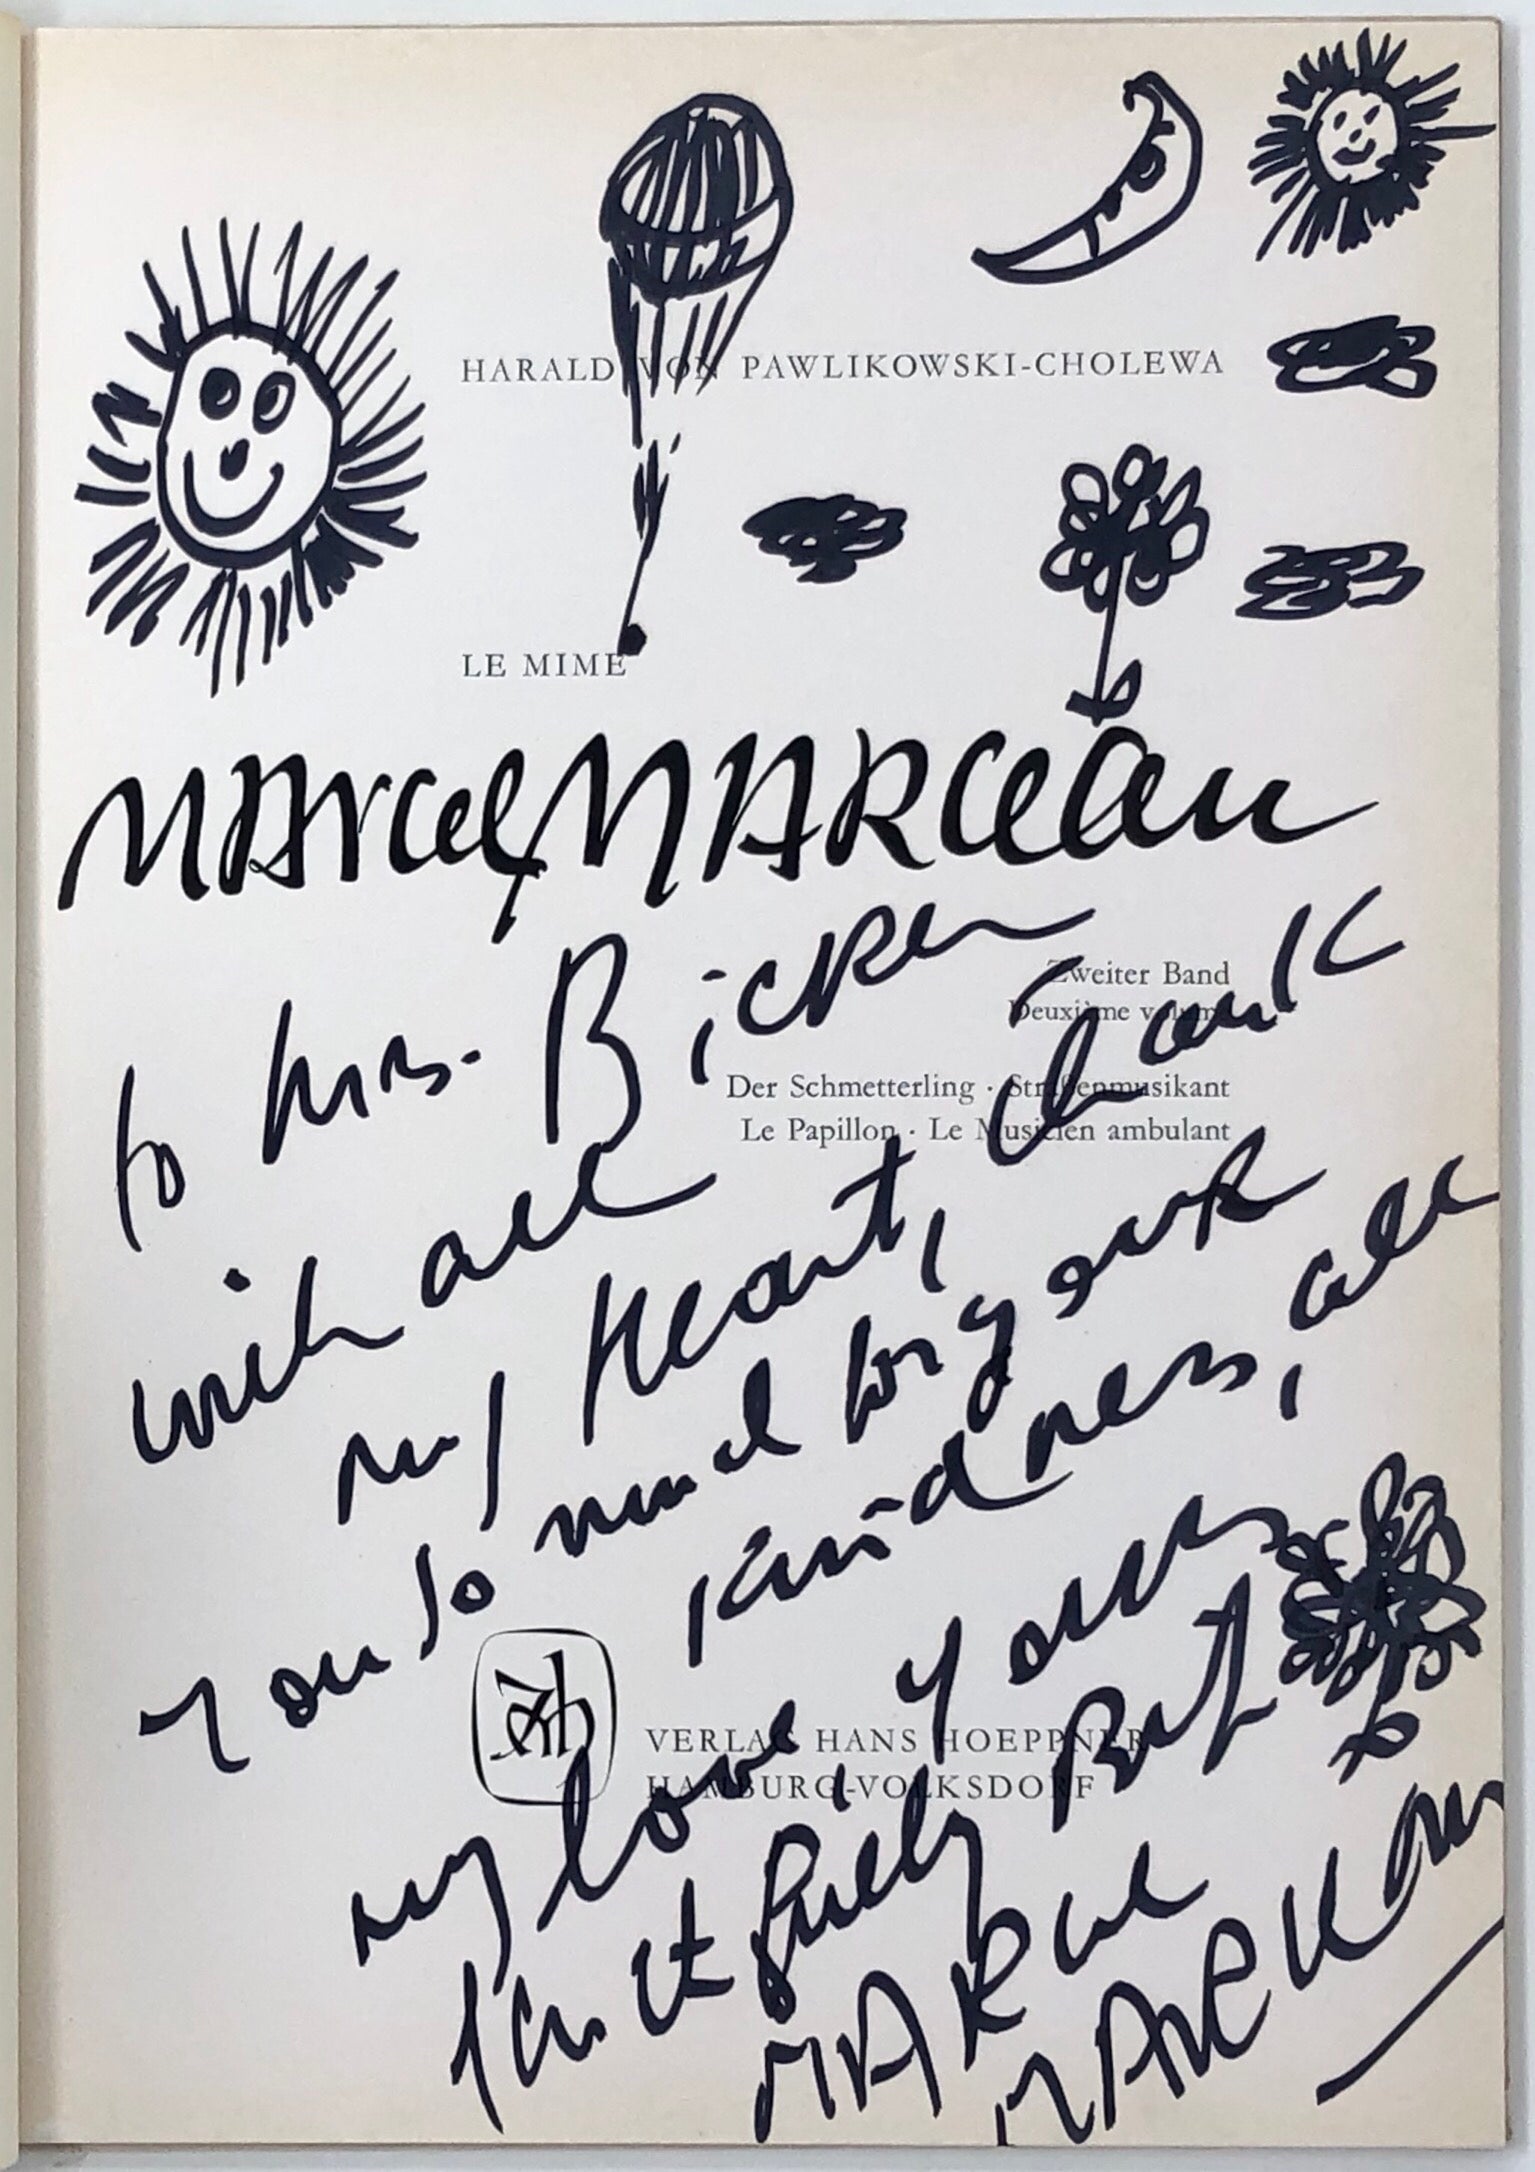 HARALD VON PAWLIKOWSKI-CHOLEWA
LE MIME
MARCEL MARCEAU
Zweiter Band
Deuxième volume
Der Schmetterling · Straßenmusikant
Le Papillon · Le Musicien ambulant
to Mrs. Bicker
with all
my heart, thank
you so much for your
kindness, all
my love yours
faithfully But
VERLAG HANS HOEPPNER
HAMBURG-VOLKSDORF
MARCEL
MARCEAU